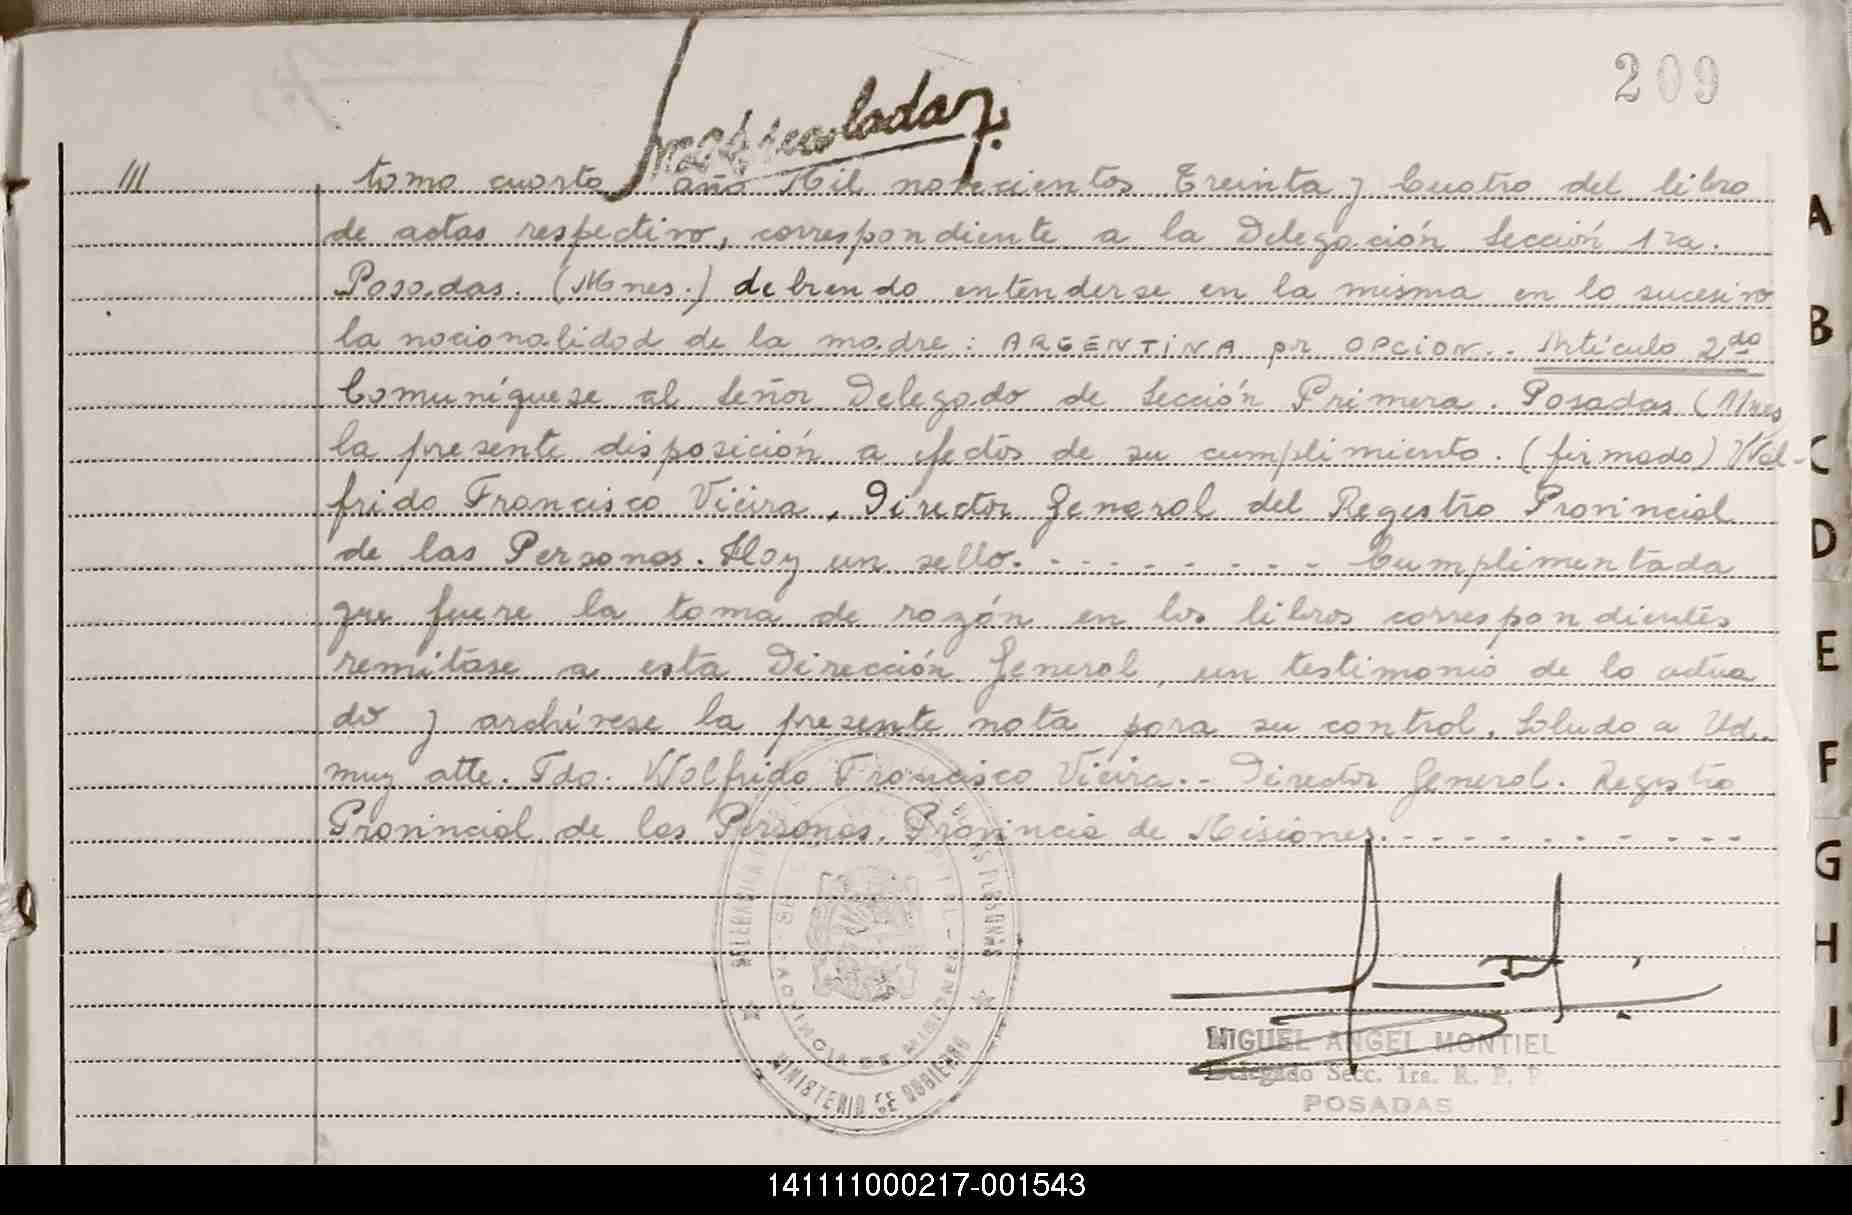 209
///
tomo cuarto año Mil novecientos Treinta y Cuatro del libro
de actas respectivo, correspondiente a la Delegación Sección 1ra.
Posadas. (Mnes.) debiendo entenderse en la misma en lo sucesivo
la nacionalidad de la madre: ARGENTINA pr OPCION.. Artículo 2do
Comuníquese al Señor Delegado de Sección Primera. Posadas (Mnes
la presente disposición a efectos de su cumplimiento. (firmado) Wol-
frido Francisco Vieira, Director General del Registro Provincial
de las Personas. Hay un sello. - - - - - - - - Cumplimentada
que fuere la toma de razón en los libros correspondientes
remítase a esta Dirección General, un testimonio de lo actua
do y archívese la presente nota para su control. Saludo a Ud.
muy atte. Fdo. Wolfrido Francisco Vieira.- Director General. Registro
Provincial de las Personas. Provincia de Misiones. - - - - - - - - -
PROVINCIA DE MISIONES
MINISTERIO DE GOBIERNO
MIGUEL ANGEL MONTIEL
Delegado Secc. 1ra. R. P. P.
POSADAS
A
B
C
D
E
F
G
H
I
J
141111000217-001543